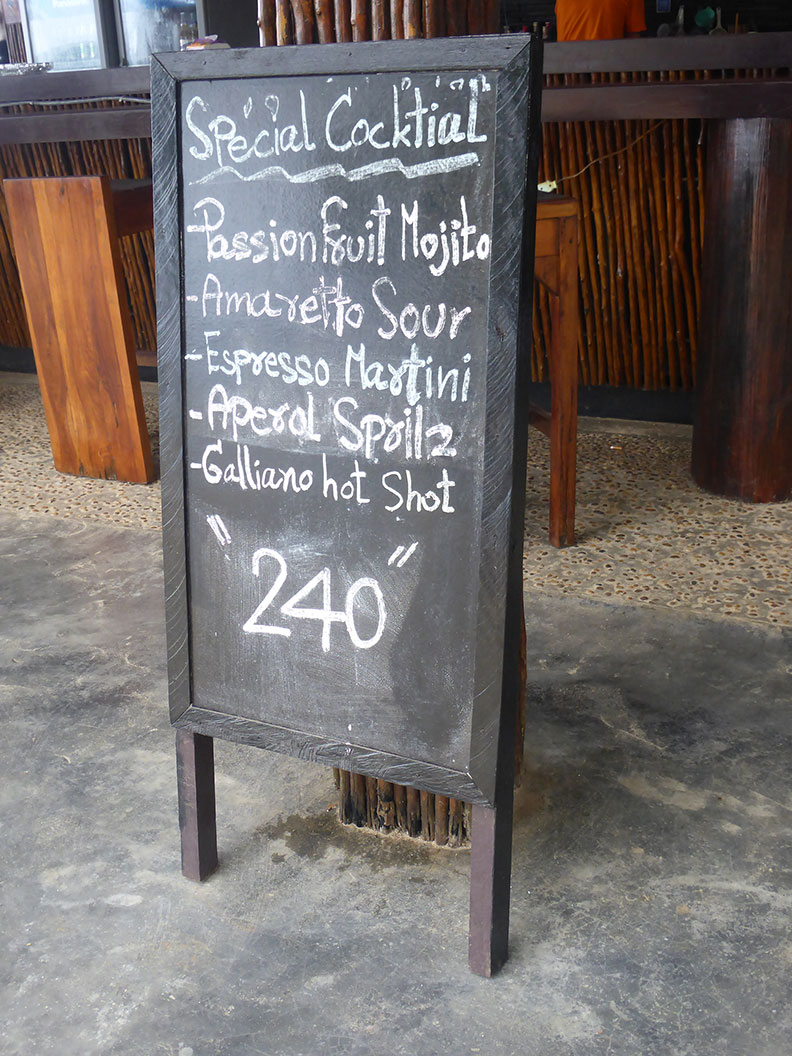 Special Cocktial
-Passion Fruit Mojito
-Amaretto Sour
-Espresso Martini
-Aperol Spritz
-Galliano hot Shot
"240"